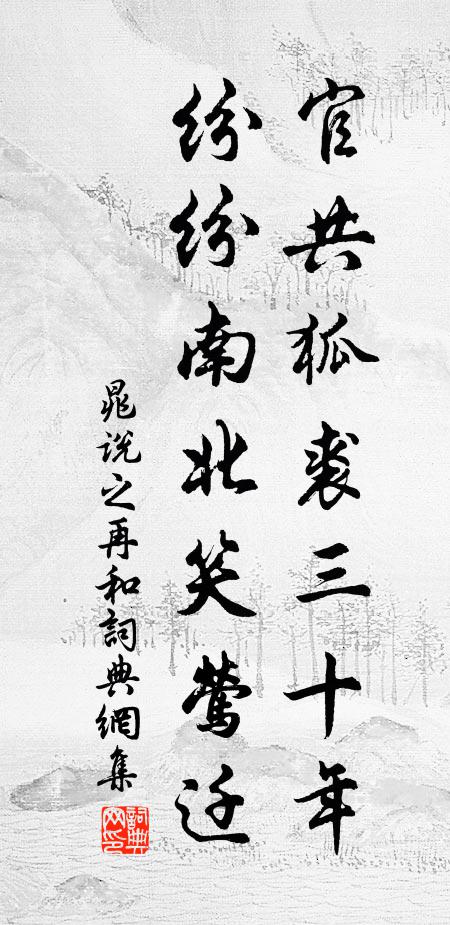 官共狐裘三十年
纷纷南北笑莺迁
晁说之再和词典网集
词典网印